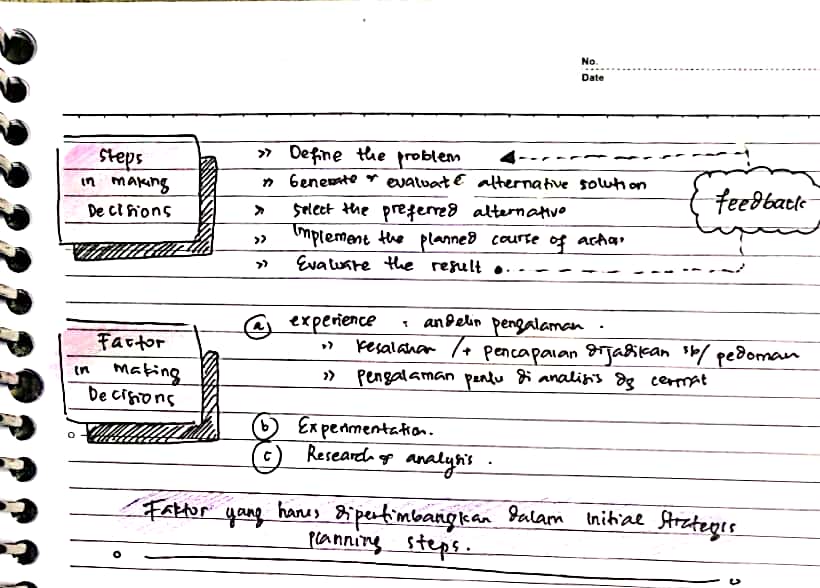 No.
Date
Steps
in making
Decisions
>> Define the problem
>> Generate & evaluate alternative solution
>> Select the preferred alternative
>> Implement the planned course of action
>> Evaluate the result
feedback
Factor
in making
Decisions
(a) experience : andelin pengalaman.
>> kesalahan /+ pencapaian dijadikan sb/ pedoman
>> pengalaman perlu di analisis dg cermat
(b) Experimentation.
(c) Research & analysis.
Faktor yang harus dipertimbangkan dalam initial strategis
planning steps.